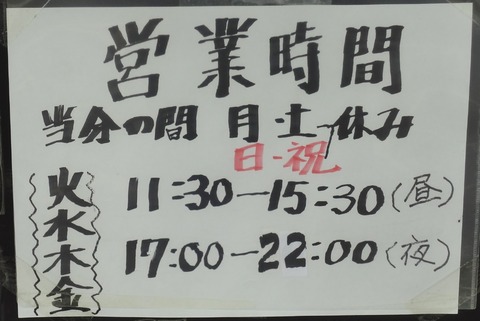 営業時間
当分の間 月・土 休み
日・祝
火水木金
11:30ー15:30(昼)
17:00ー22:00(夜)